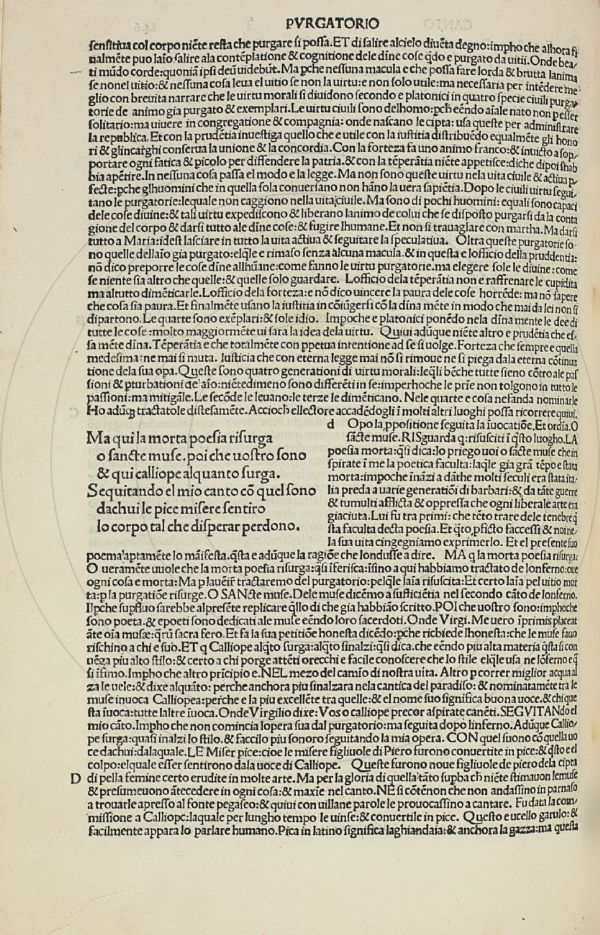 PVRGATORIO
sensitiua col corpo niẽte resta che purgare si possa. ET di salire alcielo diuẽta degno: impho che alhora fi
nalmẽte puo laĩo salire ala contẽplatiõe & cognitione dele diĩne cose qdo e purgato da uitii. Onde bea
ti mũdo corde: quoniã ipsi deũ uidebũt. Ma pche nessuna macula e che possa fare lorda & brutta lanima
se nonel uitio: & nessuna cosa leua el uitio se non la uirtu: e non solo utile: ma necessaria per intẽdere me
glio con breuita narrare che le uirtu morali si diuidono secondo e platonici in quatro specie ciuili purga
torie de animo gia purgato & exemplari. Le uirtu ciuili sono delhomo: pch eẽndo aĩale nato non p esser
solitario: ma uiuere in congregatione & compagnia: onde nascano le cipta: usa queste per administrare
la republica. Et con la prudẽtia inuestiga quello che e utile con la iustitia distribuẽdo equalmẽte gli hono
ri & glincarghi conserua la unione & la concordia. Con la forteza fa uno animo franco: & intuicto a sop
portare ogni fatica & picolo per diffendere la patria. & con la tẽperãtia niẽte appetisce: diche dipoi shab
bia apẽtire. In nessuna cosa passa el modo e la legge. Ma non sono queste uirtu nela uita ciuile & actiua p
fecte: pche glhuomini che in quella sola conuersano non hãno la uera sapiẽtia. Dopo le ciuili uirtu segui
tano le purgatorie: lequale non caggiono nella uita ciuile. Ma sono di pochi huomini: equali sono capaci
dele cose diuine: & tali uirtu expediscono & liberano lanimo de colui che se disposto purgarsi da la conta
gione del corpo & darsi tutto ale diĩne cose: & fugire lhumane. Et non si trauaglar con martha. Ma darsi
tutto a Maria: idest lasciare in tutto la uita actiua & seguitare la speculatiua. Oltra queste purgatorie so
no quelle dellaĩo gia purgato: elqle e rimaso senza alcuna macula. & in questa e lofficio della pruddentia:
nõ dico preporre le cose diĩne allhũane: come fanno le uirtu purgatorie. ma elegere sole le diuine: come
se niente sia altro che quelle: & quelle solo guardare. Lofficio dela tẽperãtia non e raffrenare le cupidita
ma altutto dimẽticarle. Lofficio dela forteza: e nõ dico uincere la paura dele cose horrẽde: ma nõ sapere
che cosa sia paura. Et finalmẽte usano la iustitia in cõiũgersi cõ la diĩna mẽte in modo che mai da lei non si
dipartono. Le quarte sono exẽplari: & i sole idio. Impoche e platonici ponẽdo nela diĩna mente le dee di
tutte le cose: molto maggiormẽte ui sara la idea dela uirtu. Quiui adũque niẽte altro e prudẽtia che es
sa mẽte diĩna. Tẽperãtia e che totalmẽte con ppetua intentione ad se si uolge. Forteza che sempre e quella
medesima: ne mai si muta. Iusticia che con eterna legge mai nõ si rimoue ne si piega dala eterna cõtinua
tione dela sua opa. Queste sono quattro generationi di uirtu morali: leqli bẽche tutte sieno cõtro ale pas
sioni & pturbationi de aĩo: niẽtedimeno sono differẽti in se: imperhoche le prĩe non tolgono in tutto le
passioni: ma mitigãle. Le secõde le leuano: le terze le dimẽticano. Nele quarte e cosa nefanda nominarle
Ho adũq; tractatole distesamẽte. Accioch ellectore accadẽdogli ĩ molti altri luoghi possa ricorrere quiui.
Ma qui la morta poesia risurga
o sancte muse. poi che uostro sono
& qui calliope alquanto surga.
Sequitando el mio canto cõ quel sono
dachui le pice misere sentiro
lo corpo tal che disperar perdono.
d Opo la ppositione seguita la iuocatiõe. Et ordia. O
sãcte muse. RISguarda q: risusciti ĩ q̃sto luogho. LA
poesia morta: q̃si dica: lo priego uoi o sãcte muse che in
spirate ĩ me la poetica faculta: laqle gia grã tẽpo e stata
morta: impoche inãzi a dãthe molti seculi era stata ĩta
lia preda a uarie generatiõi di barbari: & da tãte guerre
& tumulti afflicta & oppressa che ogni liberale arte era
giaciuta. Lui fu tra primi: che tẽto trare dele tenebre q̃
sta faculta decta poesia. Et q̃to, p̃ficto faccessi & noi ne
la sua uita cingegniamo exprimerlo. Et el presente suo
poema aptamẽte lo mãifesta. q̃sta e adũque la ragiõe che lõdusse a dire. MA q la morta poesia risurga:
O ueramẽte uuole che la morta poesia risurga: q̃si ĩferisca: ĩsino a qui habbiamo tractato de lonferno: oue
ogni cosa e morta: Ma p lauenir tractaremo del purgatorio: pelqle laĩa risuscita: Et certo laĩa pel uitio mor
ta: p la purgatiõe risurge. O SANcte muse. Dele muse dicẽmo a sufficiẽtia nel secondo cãto de lonferno.
Ilpche supfluo sarebbe alpresẽte replicare q̃llo di che gia habbião scritto. POI che uostro sono: impoche
sono poeta. & e poeti sono dedicati ale muse eẽndo loro sacerdoti. Onde Virgi. Me uero ĩprimis placeat
ãte oĩa musæ: qrũ sacra fero. Et fa la sua petitiõe honesta dicẽdo: pche richiede lhonesta: che le muse fauo
rischino a chi e suo. ET q Calliope alq̃to surga: alq̃to sinalzi: q̃si dica. che eẽndo piu alta materia q̃sta si con
uẽga piu alto stilo: & certo a chi porge attẽti orecchi e facile conoscere che lo stile elqle usa ne lonferno e q̃
si ĩfimo. Impho che altro pricipio e. NEL mezo del camĩo di nostra uita. Altro p correr miglior acqua al
za le uele: & dixe alquãto: perche anchora piu sinalzara nela cantica del paradiso: & nominatamẽte tra le
muse inuoca Calliopea: perche e la piu excellẽte tra quelle: & el nome suo significa buona uoce. & chi que
sta ĩuoca: tutte laltre ĩuoca. Onde Virgilio dixe: Vos o calliope precor aspirate canẽti. SEGVITANdo el
mio cãto. Impho che non comincia lopera sua dal purgatorio: ma seguita dopo linferno. Adũque Callio
pe surga: quasi inalzi lo stilo. & faccilo piu sonoro seguitando la mia opera. CON quel suono cõ quella uo
ce dachui: dalaquale. LE Miser pice: cioe le misere figliuole di Piero furono conuertite in pice: & q̃sto e el
colpo: elquale esser sentirono dala uoce di Calliope. Queste furono noue figliuole de piero dela cipta
D di pella femine certo erudite in molte arte. Ma per la gloria di quella tãto supba ch niẽte stimauon le muse
& presumeuono ãtecedere in ogni cosa: & maxie nel canto. NE si cõtẽnon che non andassino in parnaso
a trouarle apresso al fonte pegaseo: & quiui con uillane parole le prouocassino a cantare. Fu data la com
missione a Calliope: laquale per lungho tempo le uinse: & conuertile in pice. Questo e ucello garulo: &
facilmente appara lo parlare humano. Pica in latino significa laghiandaia: & anchora la gazza: ma questa